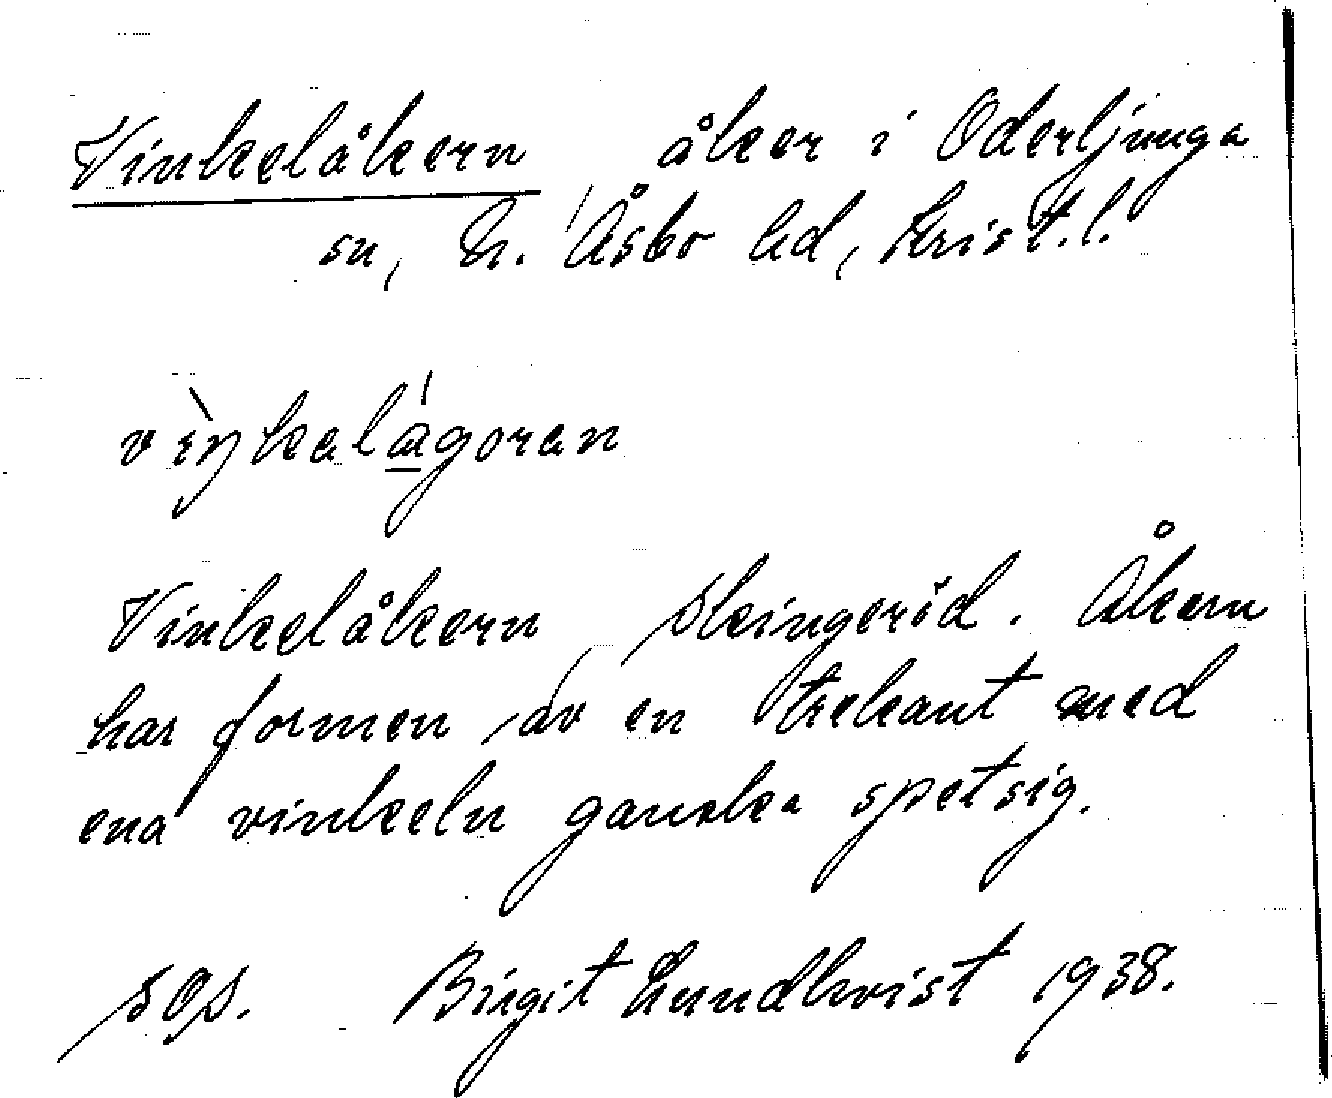 Vinkelåkern åker i Oderljunga
sn, N. Åsbo hd, Krist.l.
vìŋkəlágoran
Vinkelåkern, Skingeröd. Åkern
har formen av en trekant med
ena vinkeln ganska spetsig.
SOS. Birgit Lundkvist 1938.